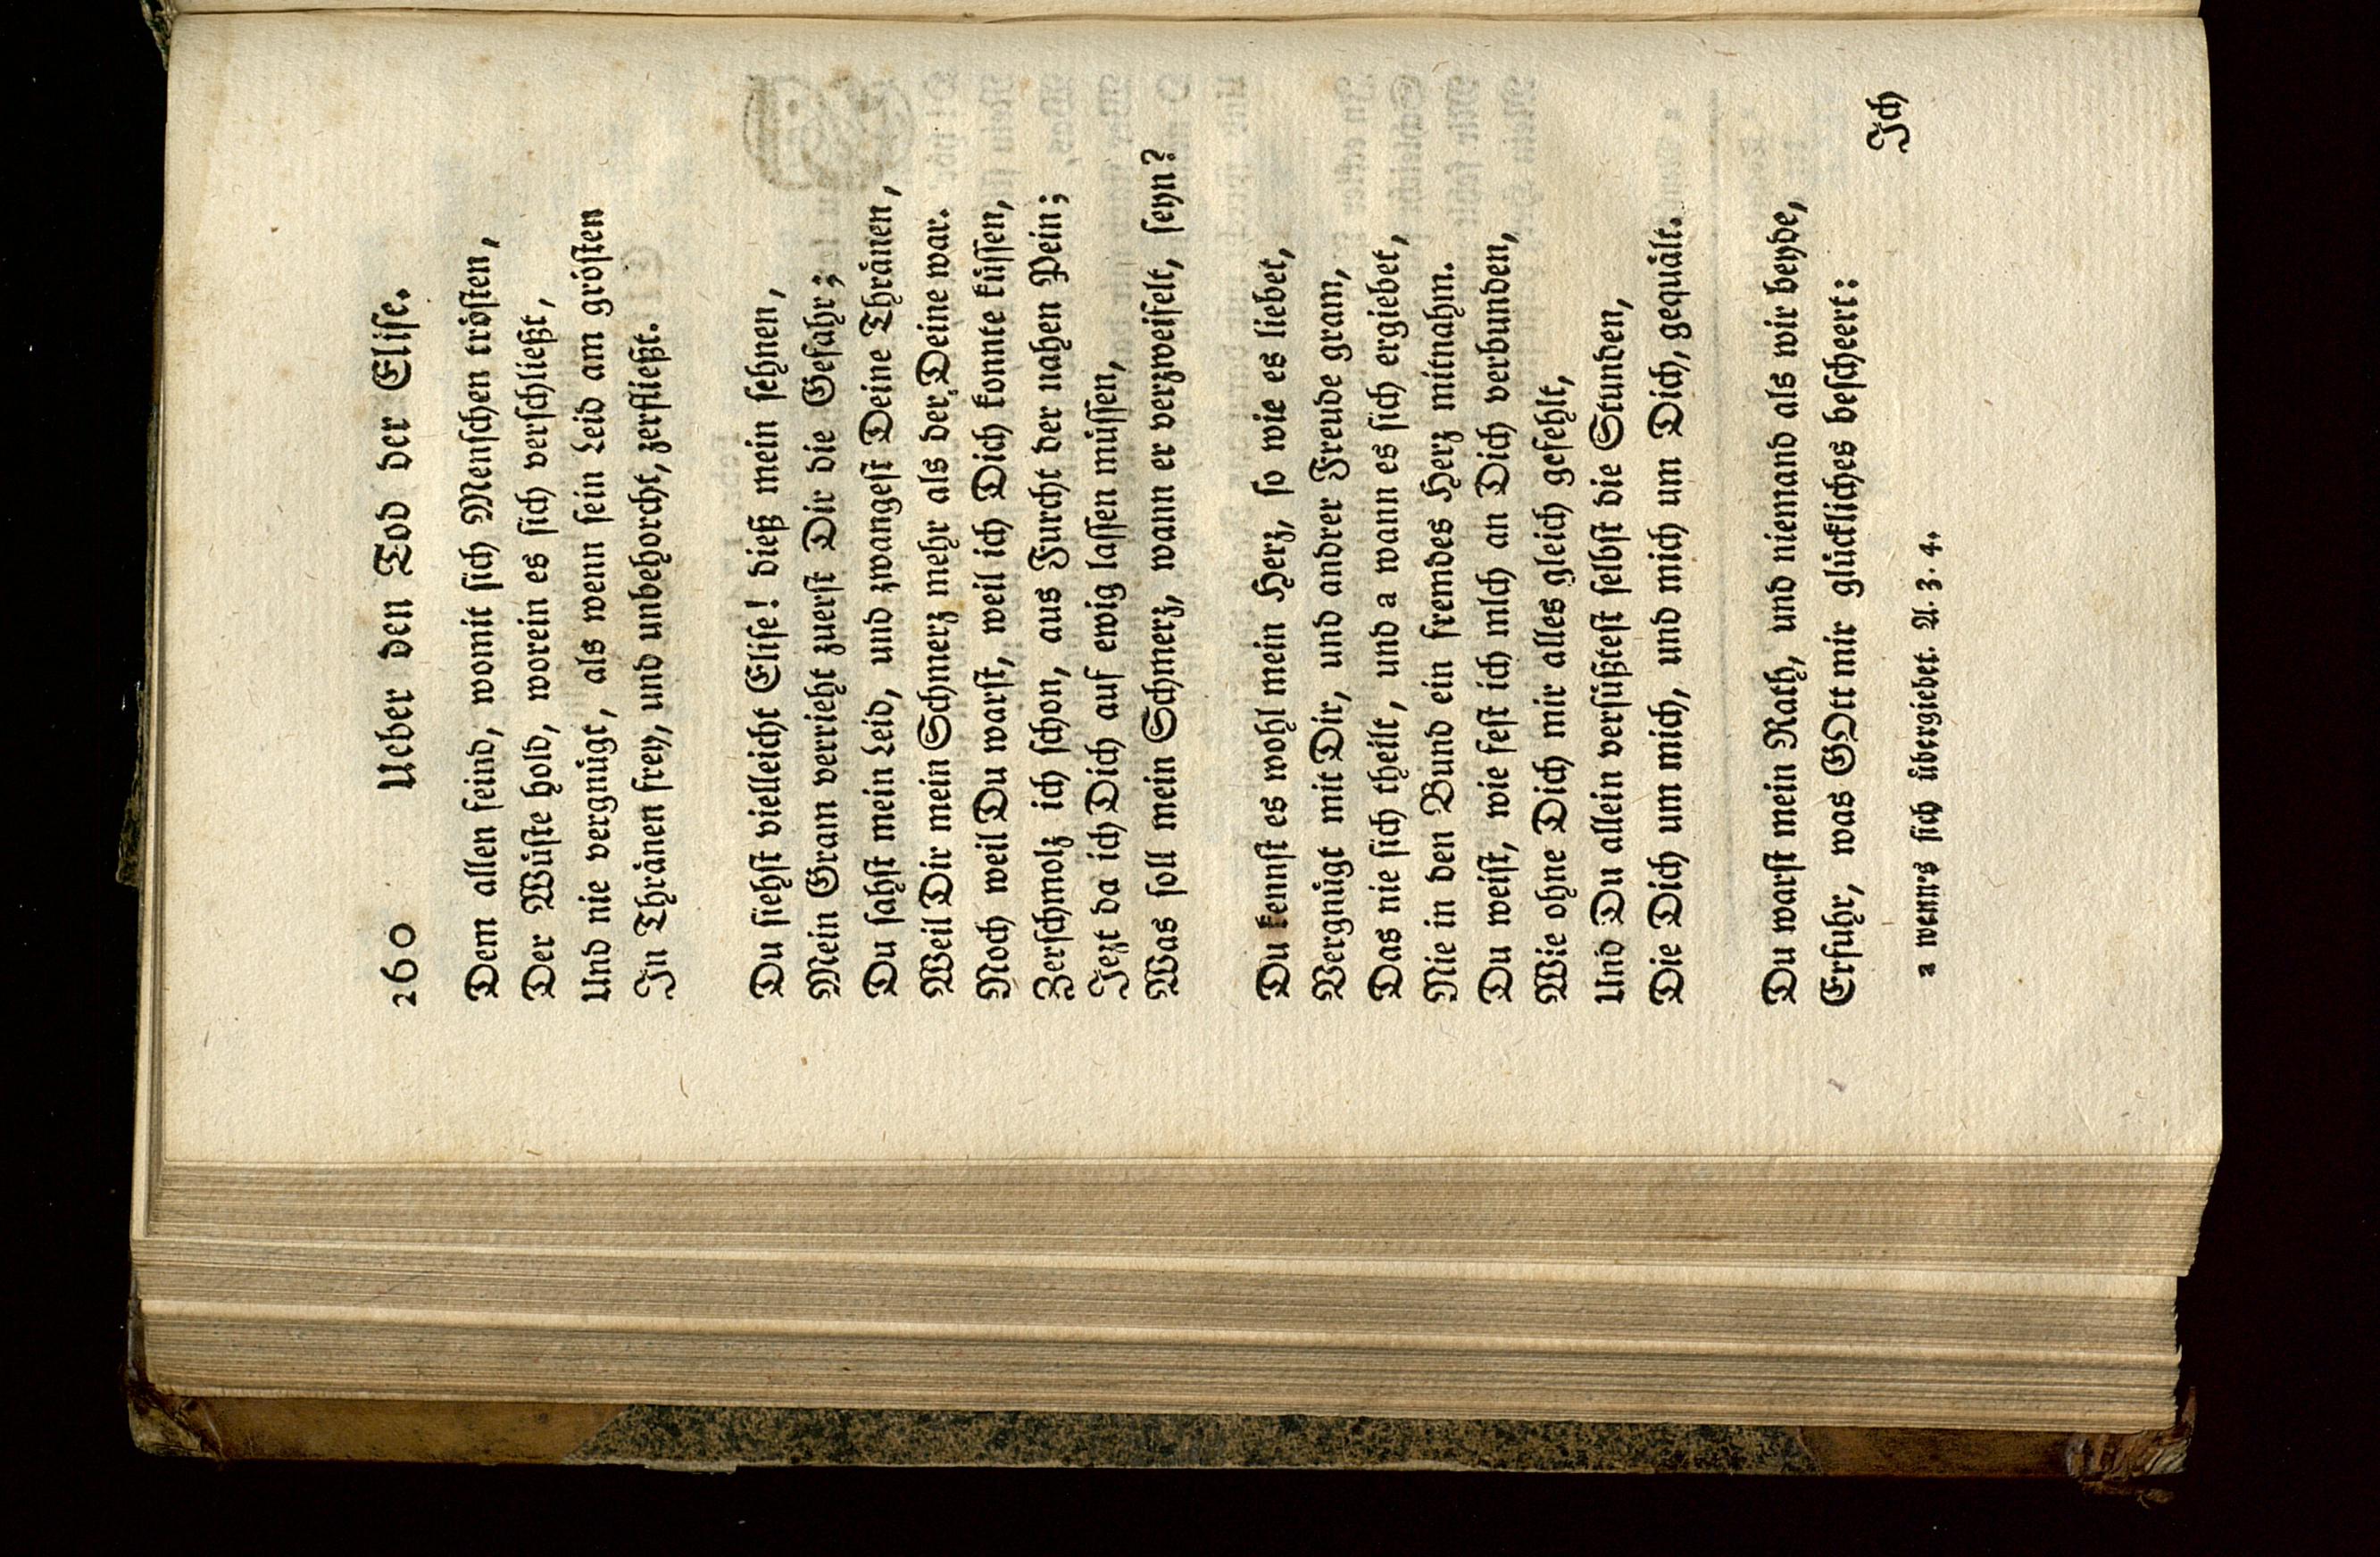 260 Ueber den Tod der Eliſe.
Dem allen feind, womit ſich Menſchen tröſten,
Der Wüſte hold, worein es ſich verſchließt,
Und nie vergnügt, als wenn ſein Leid am gröſten
In Thränen frey, und unbehorcht, zerfließt.
Du ſiehſt vielleicht Eliſe! dieß mein ſehnen,
Mein Gram verrieht zuerſt Dir die Gefahr;
Du ſahſt mein Leid, und zwangeſt Deine Thränen,
Weil Dir mein Schmerz mehr als der Deine war.
Noch weil Du warſt, weil ich Dich konnte küſſen,
Zerſchmolz ich ſchon, aus Furcht der nahen Pein;
Jezt da ich Dich auf ewig laſſen müſſen,
Was ſoll mein Schmerz, wann er verzweifelt, ſeyn?
Du kennſt es wohl mein Herz, ſo wie es liebet,
Vergnügt mit Dir, und andrer Freude gram,
Das nie ſich theilt, und a wann es ſich ergiebet,
Nie in den Bund ein fremdes Herz mitnahm.
Du weiſt, wie feſt ich mich an Dich verbunden,
Wie ohne Dich mir alles gleich gefehlt,
Und Du allein verſüßteſt ſelbſt die Stunden,
Die Dich um mich, und mich um Dich, gequält.
Du warſt mein Rath, und niemand als wir beyde,
Erfuhr, was GOtt mir glückliches beſcheert:
Ich
a wenn's ſich übergiebet. A. 3. 4.